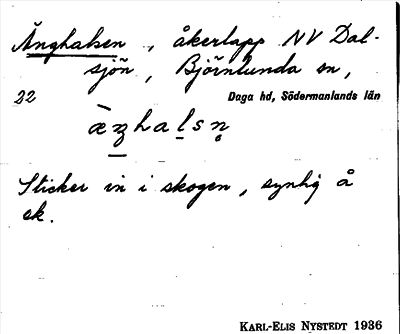 Änghalsen, åkerlapp NV Dal-
sjön, Björnlunda sn,
22 Daga hd, Södermanlands län
Sticker in i skogen, synlig å
ek.
KARL-ELIS NYSTEDT 1936